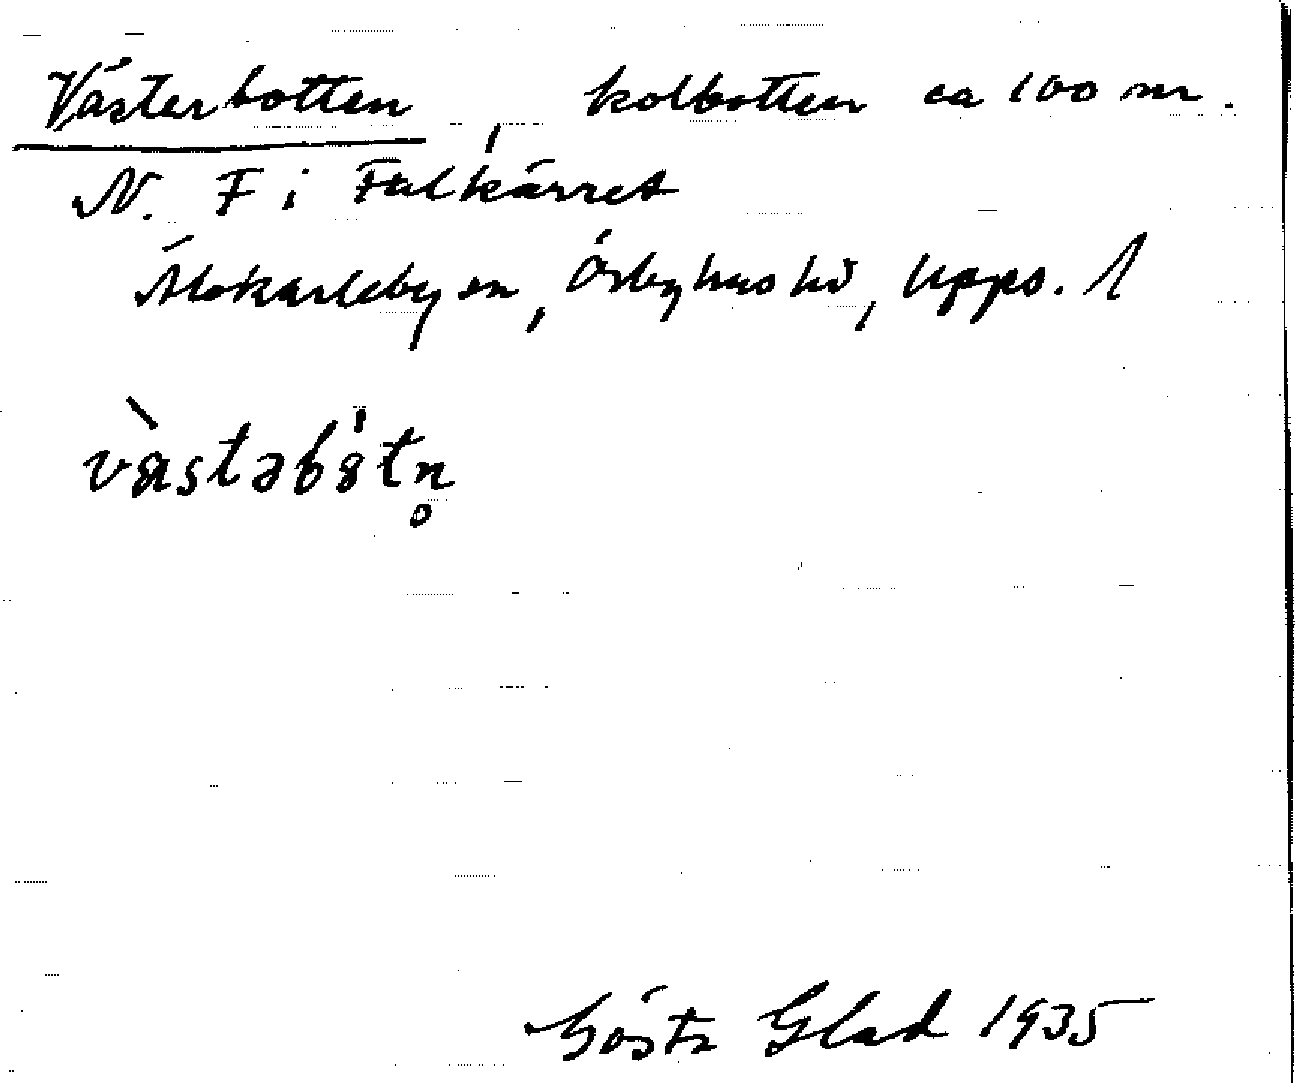 Västerbotten, kolbotten ca 100 m
N. F i Falkärret
Älvkarleby sn, Örbyhus hd, Upps. l
västəbåtn̥
Gösta Glad 1935